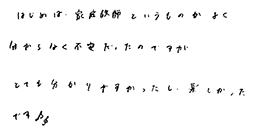 はじめは、家庭教師というものがよく
分からなく不安だったのですが
とても分かりやすかったし、楽しかった
です